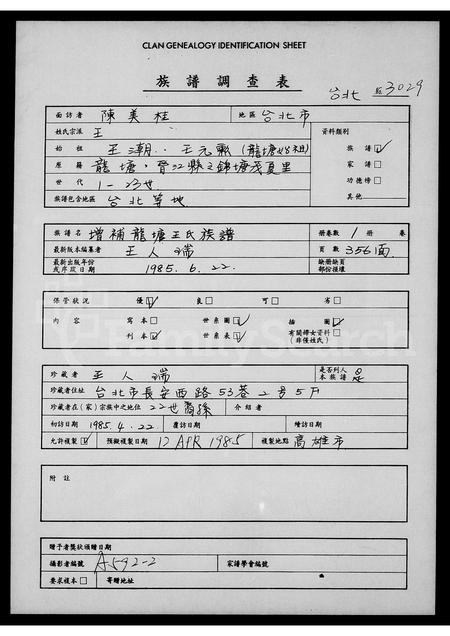 CLAN GENEALOGY IDENTIFICATION SHEET
族譜調查表
台北 3029
面訪者 陳美桂 地區 台北市
姓氏宗派 王 資料類別
始祖 王潮、王元 (龍塘始祖) 族譜☑
原籍 龍塘,晉江縣 錦塘茂夏里 家譜□
世代 1-23世 功德榜□
族譜包含地區 台北等地 其他
族譜名 增補龍塘王氏族譜 冊卷數 1 冊 卷
最新版本編纂者 王人瑞 頁數 356面
最新出版年份或序跋日期 1985.6.22. 缺冊缺頁部份損壞
保管狀況 優☑ 良□ 可□ 劣□
內容 寫本□ 世系圖☑ 插圖☑
刊本☑ 世系表☑ 有關婦女資料□ (非僅姓氏)
珍藏者 王人瑞 是否列入本族譜 是
珍藏者住址 台北市長安西路53巷2号5F
珍藏者在(家)宗族中之地位 22世裔孫 介紹者
初訪日期 1985.4.22 覆訪日期 續訪日期
允許複製☑ 預擬複製日期 12 APR 1985 複製地點 高雄市
附註
贈予者獎狀頒贈日期
攝影者編號 A592-2 家譜學會編號
要求複本□ 寄贈地址
FamilySearch